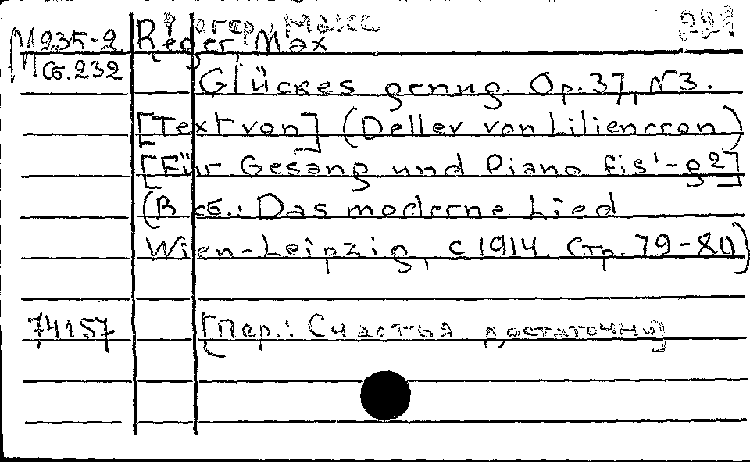 Регер, Макс 221
М235-2 Reger, Max
Сб.232
Glückes genug. Op. 37, N3.
[Text von] (Detlev von Liliencron)
[Für Gesang und Piano fis¹-g²]
(В сб.: Das moderne Lied
Wien-Leipzig, c 1914 Стр. 79-80)
74157 [Пер.: Счастья достаточно]